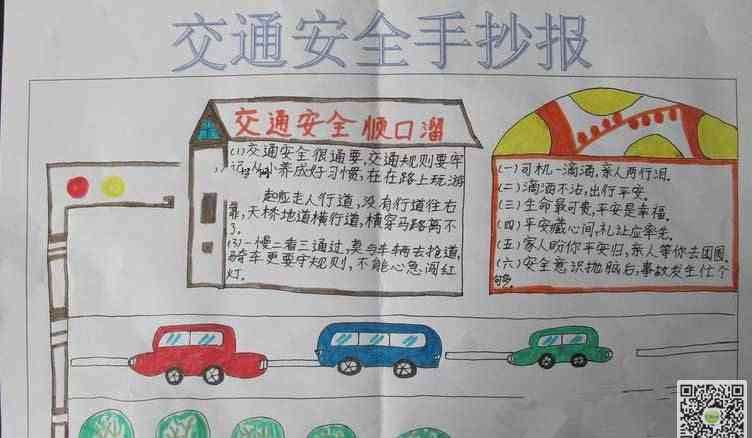 交通安全手抄报
交通安全顺口溜
(1)交通安全很通要,交通规则要牢
小养成好习惯,在在路上玩游
走人行道,没有行道往右
靠,天桥地道横行道,横穿马路离不
了。
(3)一慢二看三通过,莫与车辆去抢道,
骑车更要守规则,不能心急闯红
灯。
(一)司机一滴酒,亲人两行泪。
(二)滴酒不沾,出行平安。
(三)生命最可贵,平安是幸福。
(四)平安藏心间,礼让应牵先
(五)家人盼你平安归,亲人等你去团圆。
(六)安全意识抛脑后,事故发生忙个
够。